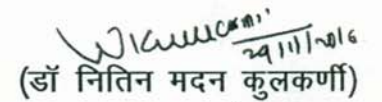 29/11/2016
(डॉ नितिन मदन कुलकर्णी)